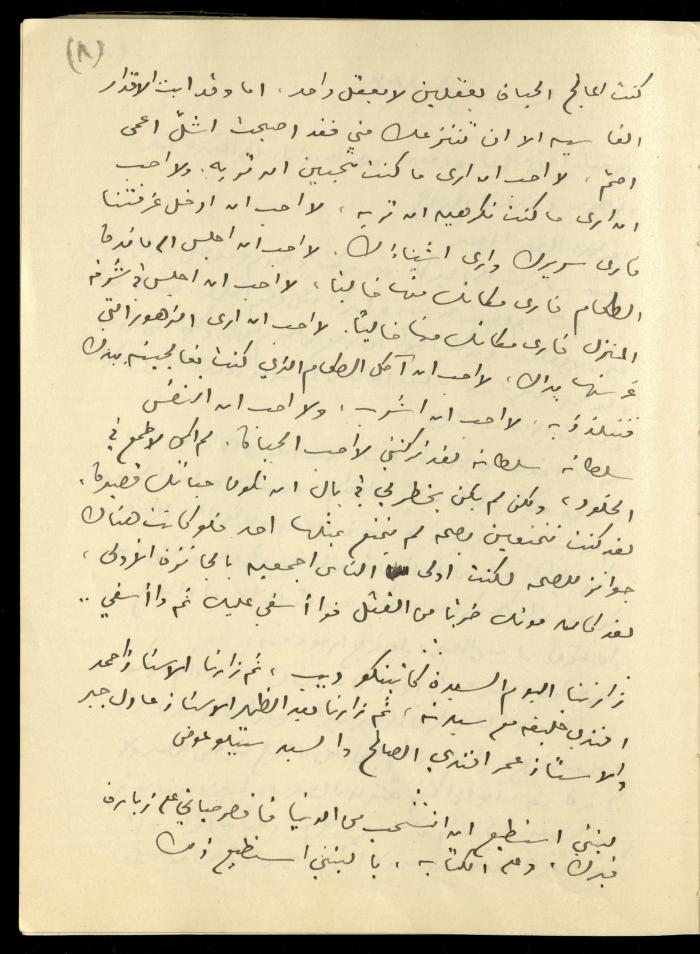 (٨)
كنت اعالج الحياة بعقلين لا بعقل واحد، اما وقد ابت الاقدار
القاسيه الا ان تنتزعك مني فقد اصبحت اشلّ اعمى
اصمّ، لا احب ان ارى ما كنت تحبين ان تريه، ولا احب
ان ارى ما كنت تكرهين ان تريه، لا احب ان ادخل غرفتنا
فارى سريرك وارى اشياءك. لا احب ان اجلس الى مائدة
الطعام فارى مكانك منها خاليا، لا احب ان اجلس في شرفة
المنزل فارى مكانك منها خالياً. لا احب ان ارى الزهور التي
غرستها يداك، لا احب ان آكل الطعام الذي كنت تعالجينه بيدك
فتتلذذ به، لا احب ان اشرب، ولا احب ان اتنفس
سلطانه سلطانه لقد تركتني لا احب الحياة. لم اكن لاطمع في
الخلود، ولكن لم يكن يخطر لي في بال ان تكون حياتك قصيرة،
لقد كنت تتمتعين بصحه لم يتمتع بمثلها احد فلو كانت هناك
جوائز للصحه لكنت اولى الناس اجمعين بالجائزة الاولى،
لقد كان موتك ضربا من القتل فوا أسفي عليك ثم وا أسفي ..
زارتنا اليوم السيدة كاتينكو ديب، ثم زارنا الاستاذ احمد
افندي خليفه مع سيدته، ثم زارنا بعد الظهر الاستاذ عادل جبر
والاستاذ عمر افندي الصالح والسيد ستيلو عوض
ليتني استطيع ان انسحب من الدنيا فاقصر حياتي على زيارة
قبرك، وعلى الكتابه، يا ليتني استطيع ذلك